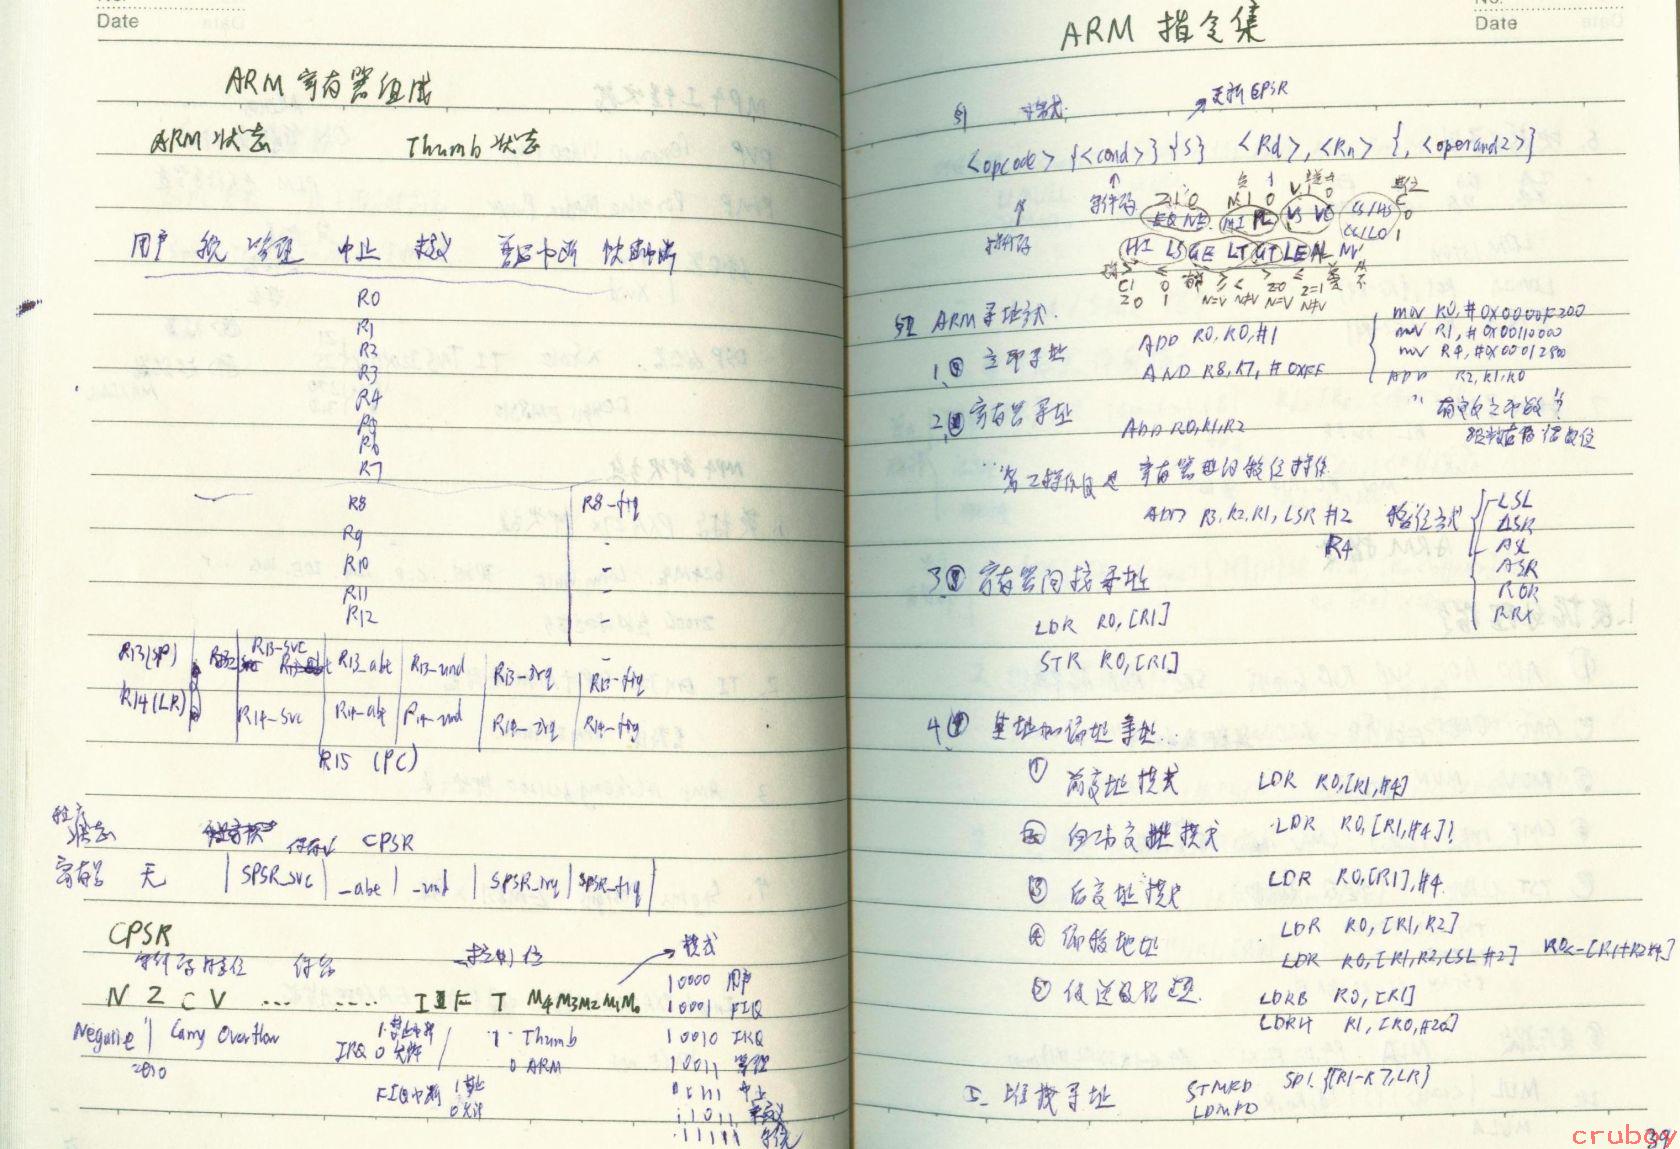 Date
ARM 寄存器组成
ARM 状态 Thumb 状态
用户 系统 管理 中止 未定义 普通中断 快速中断
R0
R1
R2
R3
R4
R5
R6
R7
R8 R8-fiq
R9 -
R10 -
R11 -
R12 -
R13(SP) R13-svc R13-abt R13-und R13-irq R13-fiq
R14(LR) R14-svc R14-abt R14-und R14-irq R14-fiq
R15 (PC)
程序
状态 CPSR
寄存器 无 SPSR_svc -abt -und SPSR_irq SPSR-fiq
CPSR
条件码标志位 保留 控制位 模式
N Z C V ... .... I F T M4M3M2M1M0
10000 用户
10001 FIQ
10010 IRQ
10011 管理
10111 中止
11011 未定义
11111 系统
Negative Carry Overflow
zero
1 禁止中断
IRQ 0 允许
1 - Thumb
0 ARM
FIQ中断 1 禁止
0 允许
Date
ARM 指令集
§1 格式 更新CPSR
<opcode> {<cond>} {S} <Rd>, <Rn> {, <operand2>}
条件码
EQ NE MI PL VS VC CS/HS
CC/LO
操作码
HI LS GE LT GT LE AL NV
§2 ARM 寻址方式.
1. 立即寻址 ADD R0, R0, #1
AND R8, R7, #0xFF
mov R0, #0x0000F200
mov R1, #0x00110000
mov R4, #0x00012800
ADD R2, R1, R0
"有效立即数"?
2. 寄存器寻址 ADD R0, R1, R2
"第二操作数是 寄存器型的移位操作
ADD R3, R2, R1, LSR #2
R4
移位方式 LSL
LSR
ASL
ASR
ROR
RRX
3. 寄存器间接寻址
LDR R0, [R1]
STR R0, [R1]
4. 基址加偏址寻址...
① 前变址模式 LDR R0, [R1, #4]
② 自动变址模式 LDR R0, [R1, #4]!
③ 后变址模式 LDR R0, [R1], #4
④ 偏移地址 LDR R0, [R1, R2]
LDR R0, [R1, R2, LSL #2] R0<-[R1+R2*4]
⑤ 传送数据类型. LDRB R0, [R1]
LDRH R1, [R0, #20]
5. 堆栈寻址 STMFD SP!, {R1-R7, LR}
LDMFD
39
cruboy